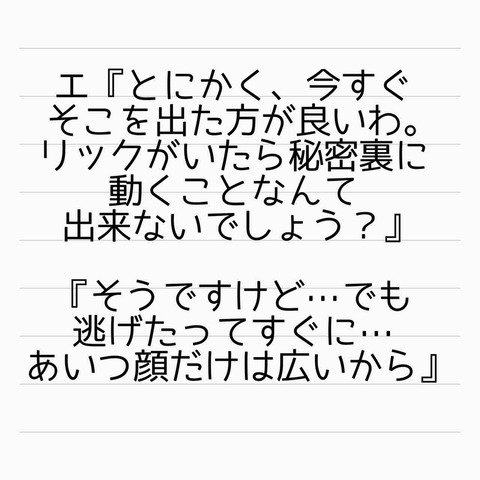 エ『とにかく、今すぐ
そこを出た方が良いわ。
リックがいたら秘密裏に
動くことなんて
出来ないでしょう？』
『そうですけど…でも
逃げたってすぐに…
あいつ顔だけは広いから』